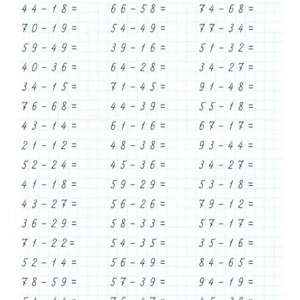 44-18= 66-58= 74-68=
70-19= 54-49= 77-34=
59-49= 39-16= 51-32=
40-36= 64-28= 34-27=
34-15= 71-45= 91-48=
76-68= 44-39= 55-18=
43-14= 61-16= 67-17=
21-12= 48-38= 93-44=
52-24= 45-36= 34-27=
41-18= 59-29= 53-18=
43-27= 56-26= 79-12=
36-29= 58-33= 57-17=
71-22= 54-35= 35-16=
52-14= 56-49= 84-65=
78-59= 57-39= 94-19=